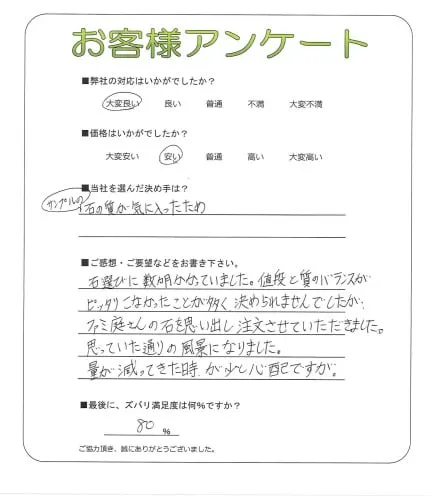 お客様アンケート
■弊社の対応はいかがでしたか?
大変良い 良い 普通 不満 大変不満
■価格はいかがでしたか?
大変安い 安い 普通 高い 大変高い
■当社を選んだ決め手は?
サンプルの
石の質が気に入ったため
■ご感想・ご要望などをお書き下さい。
石選びに数ヶ月かかっていました。値段と質のバランスが
ピッタリこなかったことが多く、決められませんでしたが、
ファミ庭さんの石を思い出し注文させていただきました。
思っていた通りの風景になりました。
量が減ってきた時が少し心配ですが。
■最後に、ズバリ満足度は何%ですか?
80 %
ご協力頂き、誠にありがとうございました。